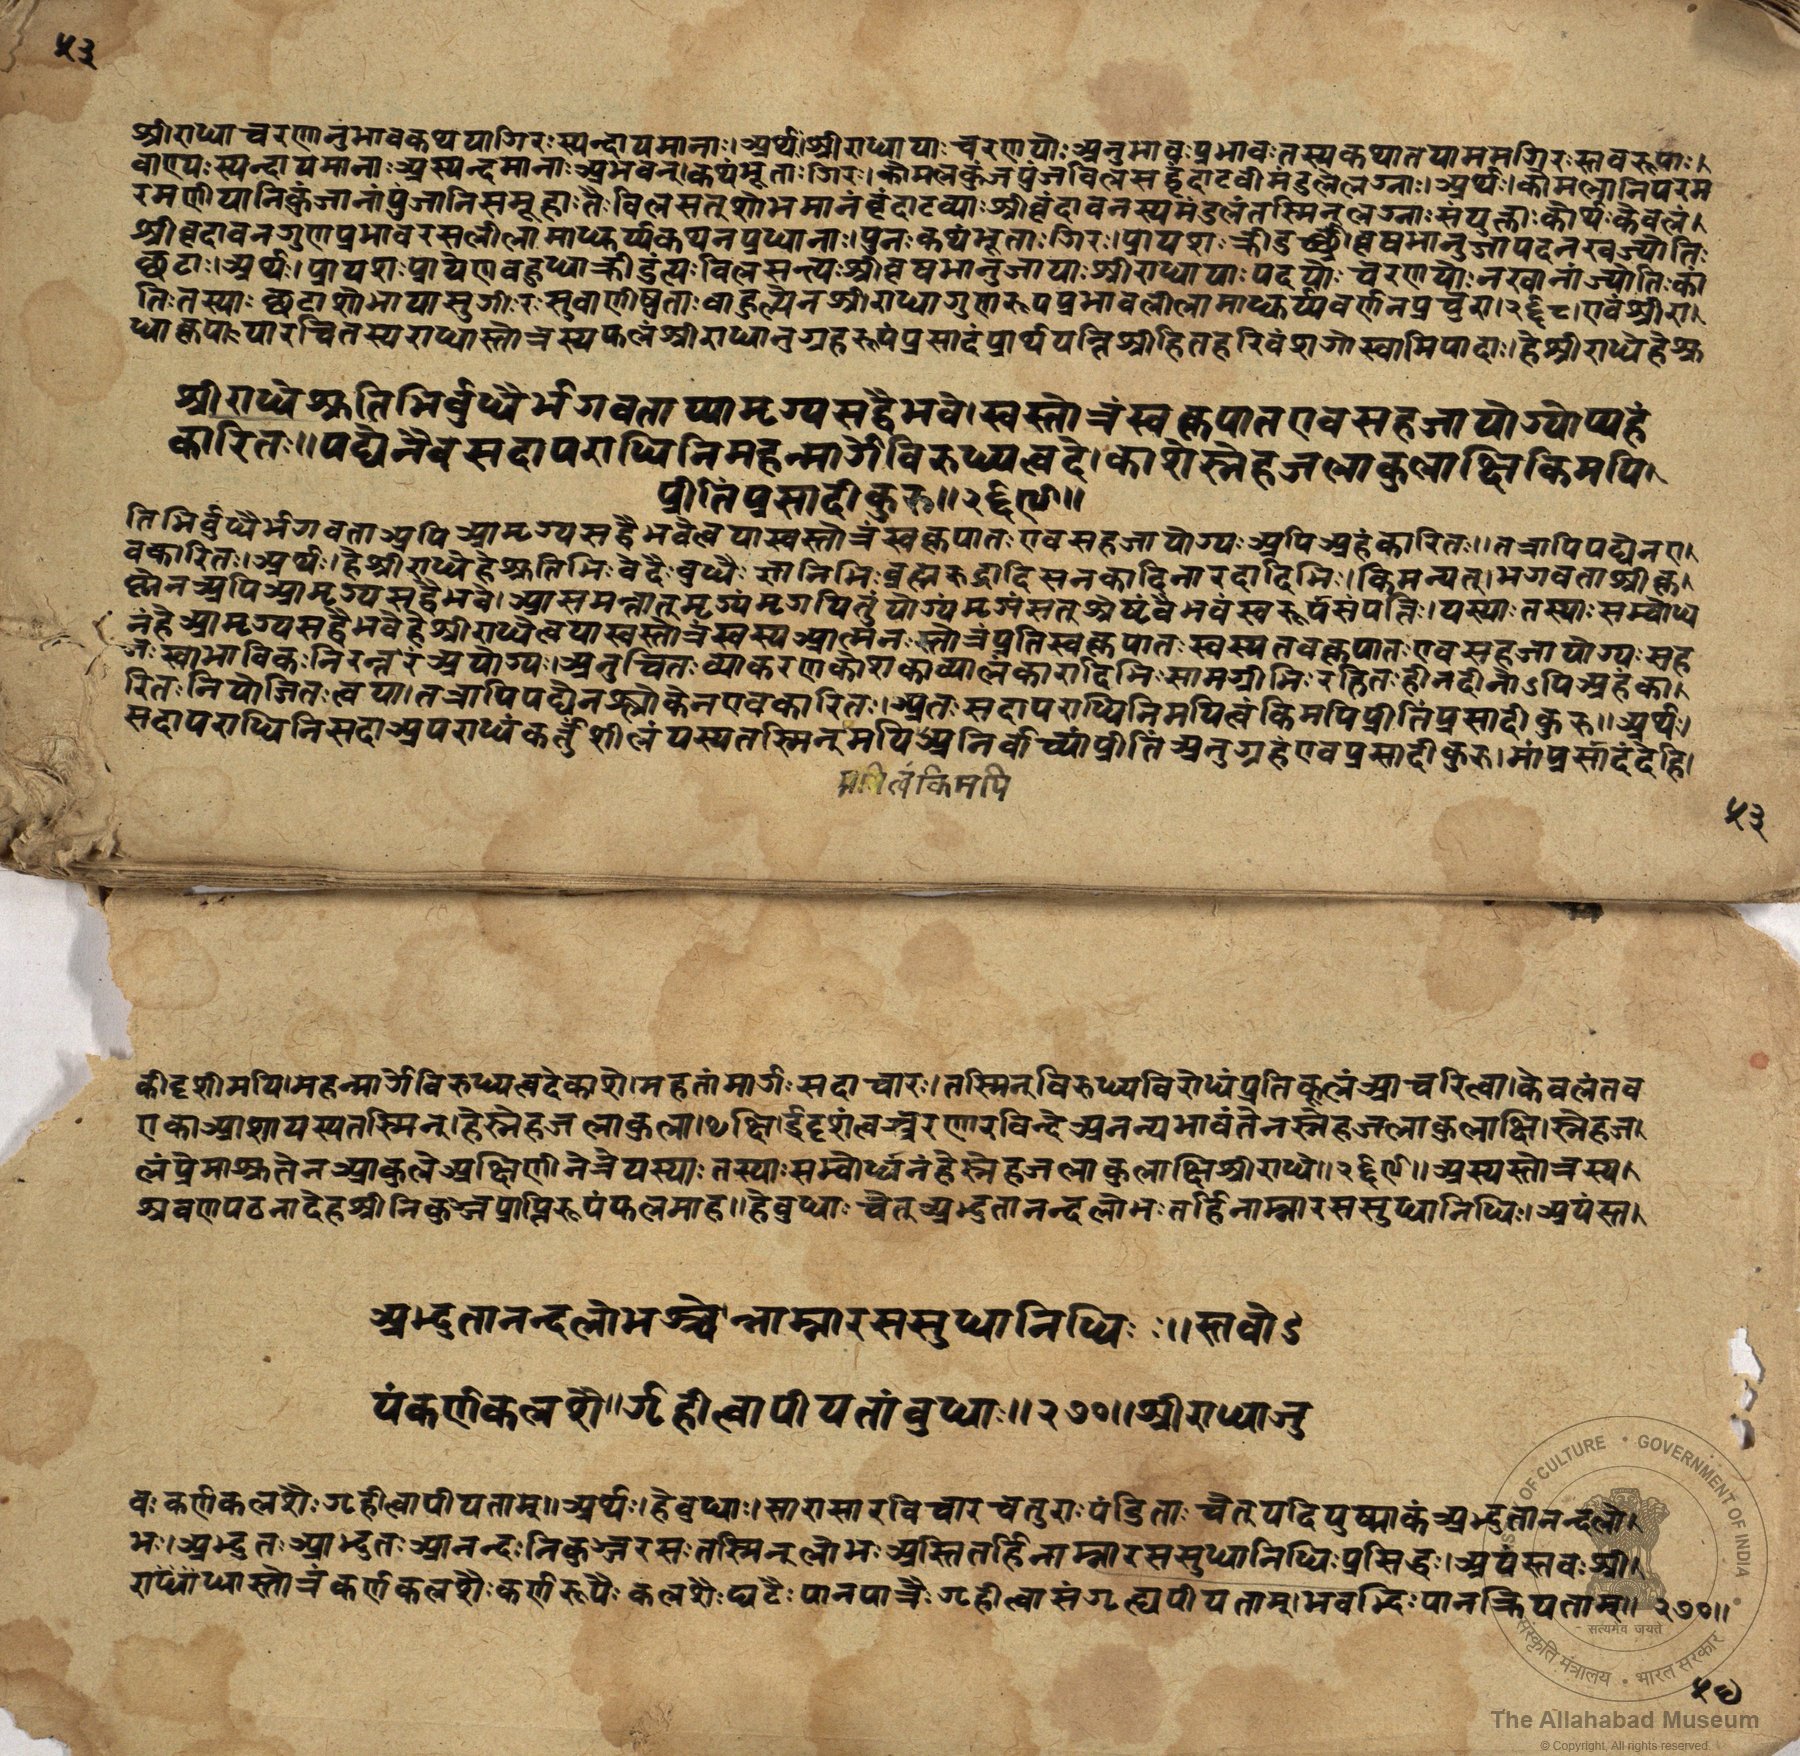 ५३
श्रीराधाचरणानुभावकथया गिरः स्पन्दायमानाः। अर्थः। श्रीराधायाः चरणयोः अनुभावः प्रभावः तस्य कथा तया मम गिरः स्तवरूपाः।
वाण्यः स्पन्दायमानाः प्रस्पन्दमानाः अभवन्। कथंभूताः गिरः। कोमलकुंजपुंजविलसद्वृंदाटवीमंडुलेलग्नाः। अर्थः। कोमलानि परम
रमणीयानि कुंजानां पुंजानि समूहाः तैः विलसत् शोभमानं वृंदाटव्याः श्रीवृंदावनस्य मंडुलं तस्मिन् लग्नाः संयुक्ताः कोर्थः केवलं।
श्रीवृंदावनगुणप्रभावरसलीलामाधुर्य्यकथनप्रधानाः। पुनः कथंभूताः गिरः। प्रायशः क्रीडु श्रीवृषभानुजापदनखज्योति
छटाः। अर्थः। प्रायशः प्रायेण बहुधा क्रीडुंत्यः विलसन्त्यः श्रीवृषभानुजायाः श्रीराधायाः पदयोः चरणयोः नखानां ज्योतिः का
तिः तस्याः छटा शोभा यासु गीःरः सुवाणीषु ताः बाहुल्येन श्रीराधागुणरूपप्रभावलीलामाधुर्य्यवर्णनप्रचुरा। २६८। एवं श्रीरा।
धाकृपाया रचितस्य राधास्तोत्रस्य फलं श्रीराधानुग्रहरूपं प्रसादं प्रार्थयन्ति श्रीहितहरिवंशगोस्वामिपादाः। हे श्रीराधे हे श्रु
श्रीराधे श्रुतिभिर्बुधैर्भगवताप्यामृग्यसद्वैभवे। स्वस्तोत्रं स्वकृपात एव सहजायोग्योप्यहं
कारितः॥ पद्येनैव सदापराधिनि महन्मार्गे विरुध्य त्वदे। काशे स्नेहजलाकुलाक्षि किमपि।
प्रीतिं प्रसादीकुरु॥ २६९॥
तिभिर्बुधैर्भगवता अपि आमृग्यसद्वैभवे त्वया स्वस्तोत्रं स्वकृपातः एव सहजायोग्यः अपि अहं कारितः॥ तत्रापि पद्येन ए।
वकारितः। अर्थः। हे श्रीराधे हे श्रुतिभिः वेदैः बुधैः ज्ञानिभिः ब्रह्मरुद्रादिसनकादिनारदादिभिः। किमन्यत्। भगवता श्रीकृ।
ष्णेन अपि आमृग्यसद्वैभवे। आसमन्तात् मृग्यं मृगयितुं योग्यं मृगं सत् श्रेष्ठं वैभवं स्वरूपंसंपत्तिः। यस्याः तस्याः सम्बोध
नं हे आमृग्यसद्वैभवे हे श्रीराधे त्वया स्वस्तोत्रं स्वस्य आत्मनः स्तोत्रं प्रति स्वकृपातः स्वस्य तव कृपातः एव सहजायोग्यः सह
जः स्वाभाविकः निरन्तरं अयोग्यः। अनुचितः व्याकरणकोशकाव्यालंकारादिभिः सामग्रीभिः रहितः हीनदीनोऽपि अहं का।
रितः नियोजितः त्वया। तत्रापि पद्येन श्लोकेन एव कारितः। अतः सदापराधिनि मयि त्वं किमपि प्रीतिं प्रसादीकुरु॥ अर्थः।
सदापराधिनि सदा अपराधं कर्तुं शीलं यस्य तस्मिन् मयि अनिर्वाच्यां प्रीतिं अनुग्रहं एव प्रसादीकुरु। मां प्रसादं देहि।
किमपि
५३
कीदृशी मयि। महन्मार्गे विरुध्य त्वदेकाशे। महतां मार्गः सदाचारः। तस्मिन् विरुध्य विरोधं प्रतिकूलं आचरित्वा। केवलं तव
एका आशा यस्य तस्मिन्। हे स्नेहजलाकुला। ७क्षि। ईदृशं त्वच्चरणारविन्दे अनन्यभावं तेन स्नेहजलाकुलाक्षि। स्नेहज।
लं प्रेमाश्रु तेन आकुले अक्षिणी नेत्रे यस्याः तस्याः सम्बोर्धनं हे स्नेहजलाकुलाक्षि श्रीराधे॥ २६९॥ अस्य स्तोत्रस्य।
श्रवणपठनादेह श्रीनिकुञ्जप्राप्तिरूपं फलमाह॥ हे बुधाः चेत् अद्भुतानन्दलोभः तर्हि नाम्ना रससुधानिधिः। अयं स्त।
अद्भुतानन्दलोभश्चेन्नाम्ना रससुधानिधिः ः॥ स्तवोऽ
यं कर्णकलशै॥र्गृहीत्वा पीयतां बुधाः॥ २७०॥ श्रीराधानु
वः कर्णकलशैः गृहीत्वा पीयताम्॥ अर्थः। हे बुधाः। सारासारविचारचतुराः पंडिताः चेत् यदि युष्माकं अद्भुतानन्दलो।
भः। अद्भुतः आद्भुतः आनन्दः निकुञ्जरसः तस्मिन् लोभः अस्ति तर्हि नाम्ना रससुधानिधिः प्रसिद्धः। अयं स्तवः श्री।
राधाधास्तोत्रं कर्णकलशैः कर्णरूपैः कलशैः घटैः पानपात्रैः गृहीत्वा संगृह्य पीयताम्। भवद्भिः पानक्रियताम्॥ २७०॥
५४
CULTURE • GOVERNMENT OF INDIA
सत्यमेव जयते
संस्कृति मंत्रालय • भारत सरकार
The Allahabad Museum
© Copyright, All rights reserved.